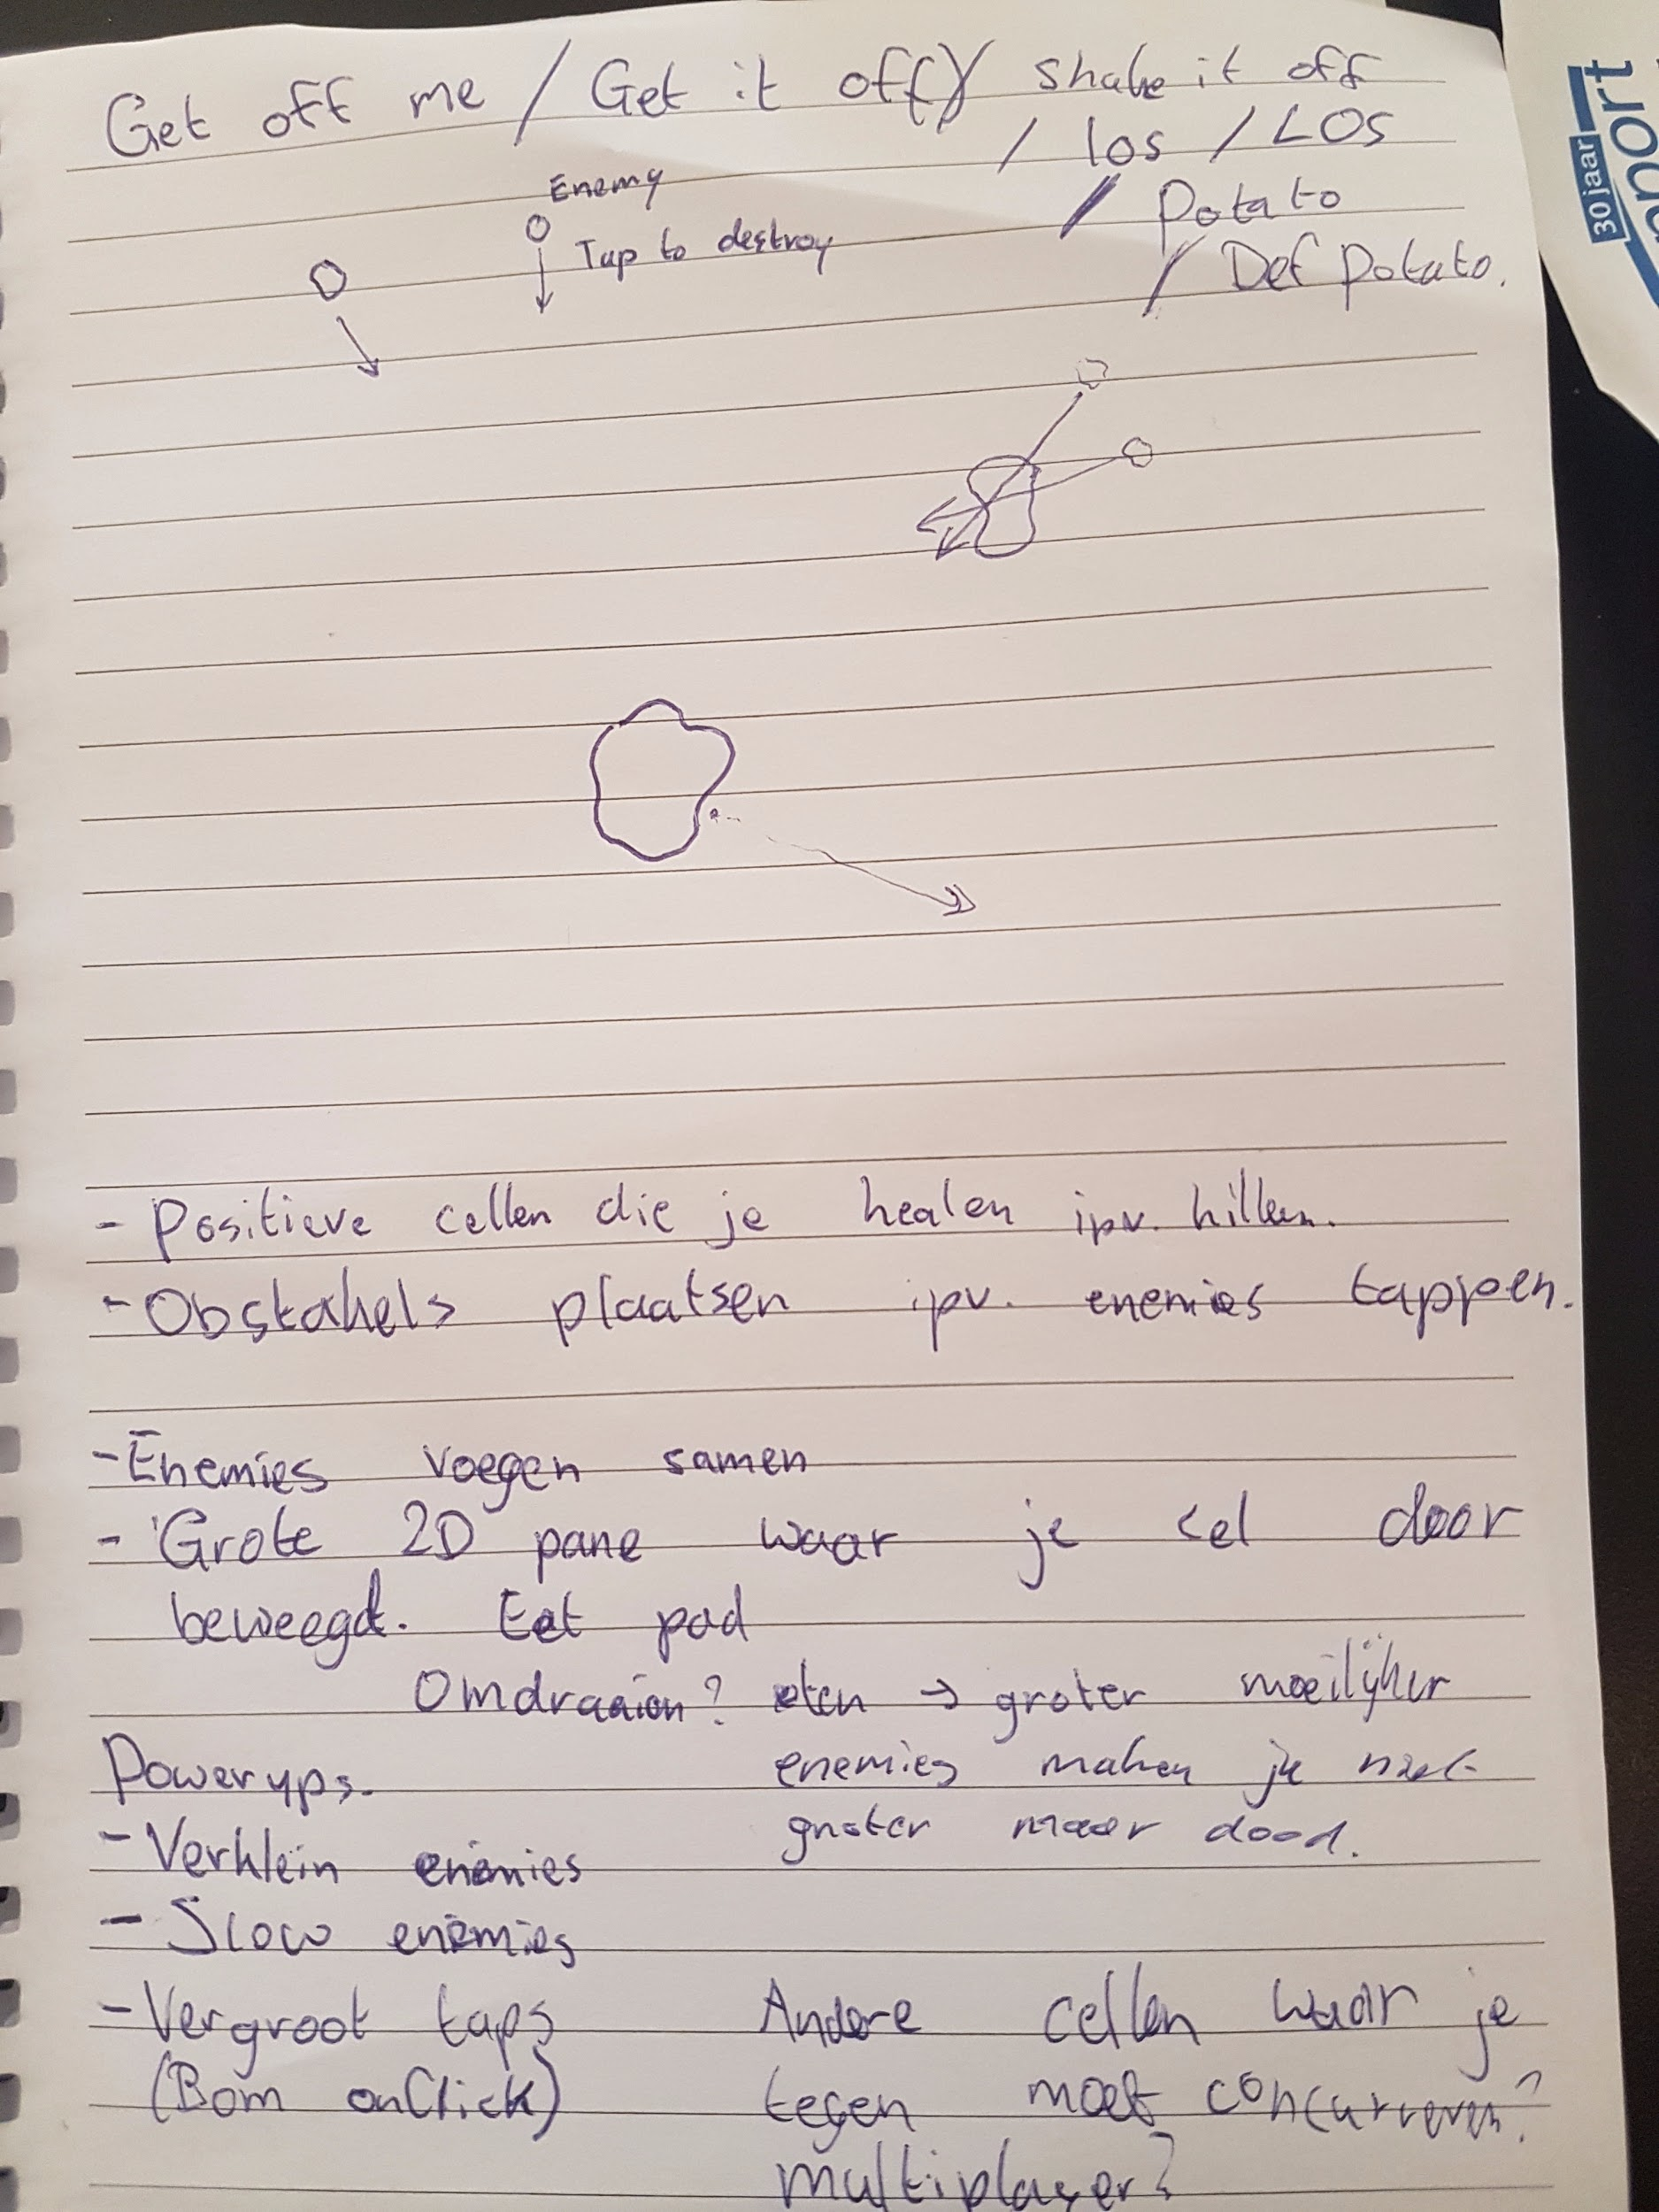 Get off me / Get it off / shake it off
/ los / LOS
/ Potato
/ Def potato.
Enemy
Tap to destroy
30 jaar
port
- Positieve cellen die je healen ipv. killen.
- Obstakels plaatsen ipv. enemies tappen.
- Enemies voegen samen
- Grote 2D pane waar je cel door
beweegd. Eet pad
Omdraaien? eten → groter moeilijker
enemies maken je niet
groter maar dood.
Powerups.
- Verklein enemies
- Slow enemies
- Vergroot taps
(Bom onClick)
Andere cellen waar je
tegen moet concurreren?
multiplayer?